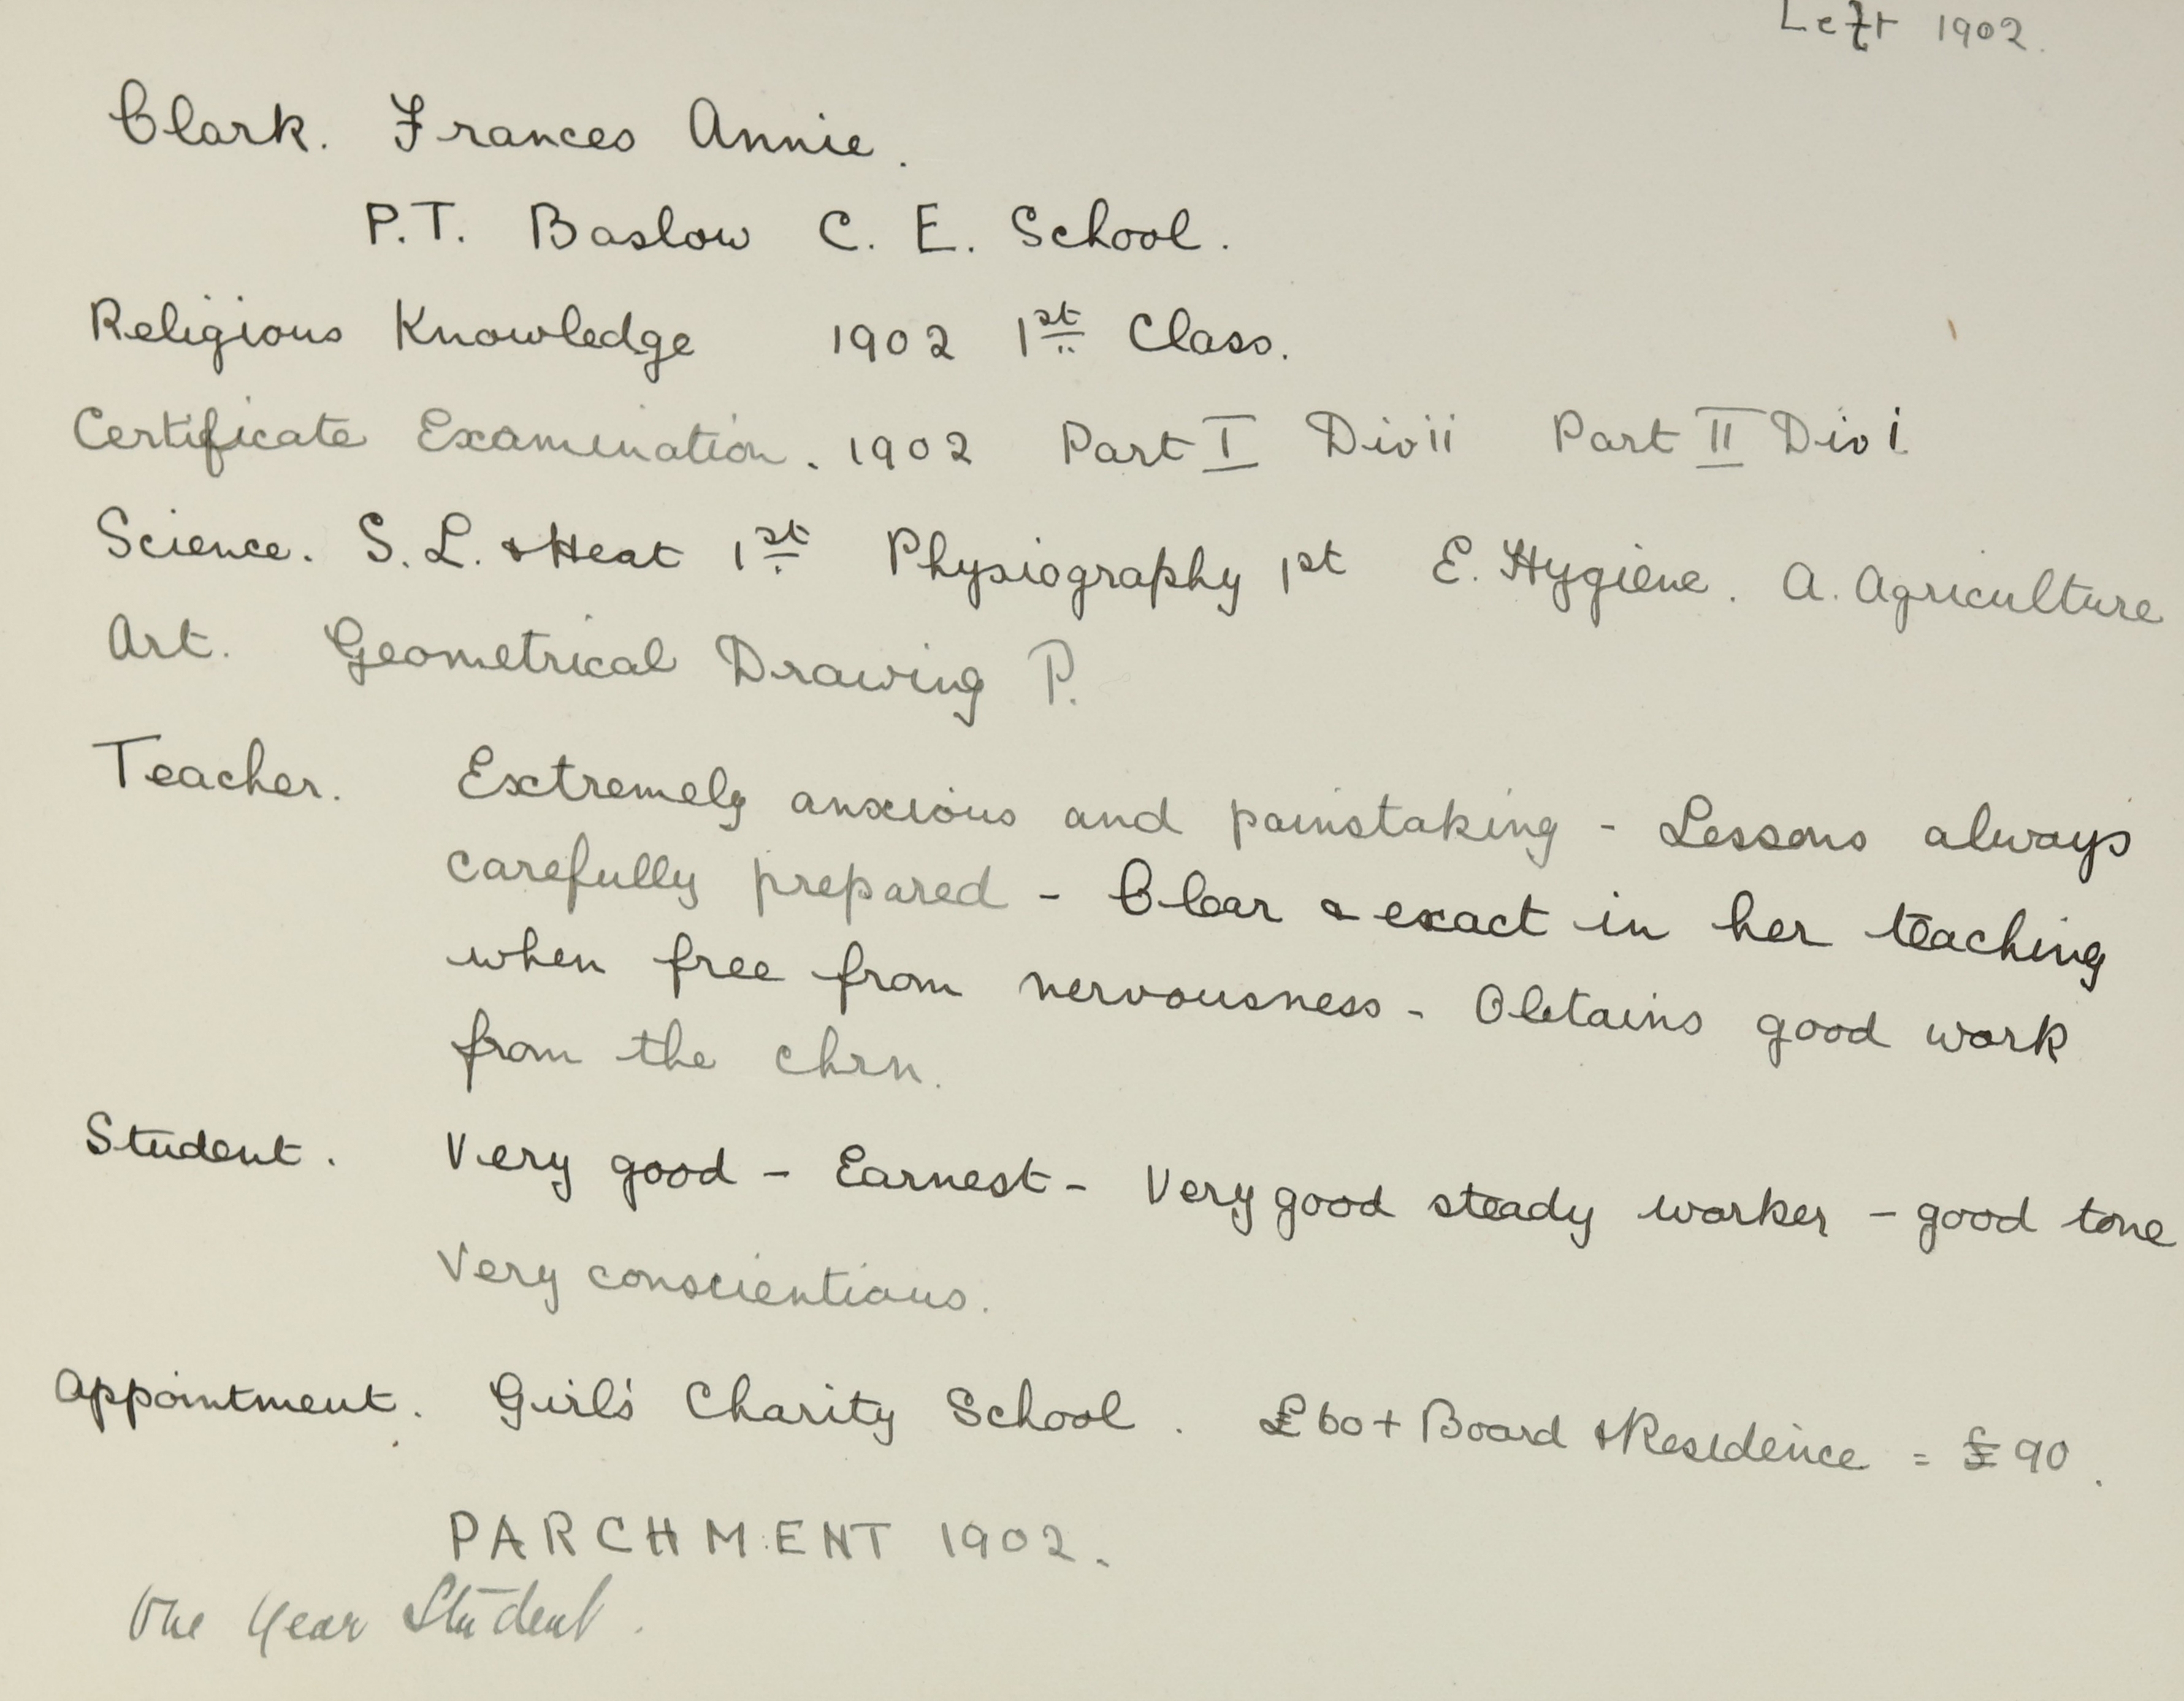 Left 1902.
Clark. Frances Annie.
P.T. Baslow C. E. School.
Religious Knowledge 1902 1st Class.
Certificate Examination. 1902 Part I Div ii Part II Div i.
Science. S.L. & Heat 1st Physiography 1st E. Hygiene. A. Agriculture
Art. Geometrical Drawing P.
Teacher. Extremely anxious and painstaking - Lessons always
carefully prepared - Clear & exact in her teaching
when free from nervousness - Obtains good work
from the chrn.
Student. Very good - Earnest - Very good steady worker - good tone
Very conscientious.
Appointment. Girl's Charity School. £60 + Board & Residence = £90.
PARCHMENT 1902.
One Year Student.